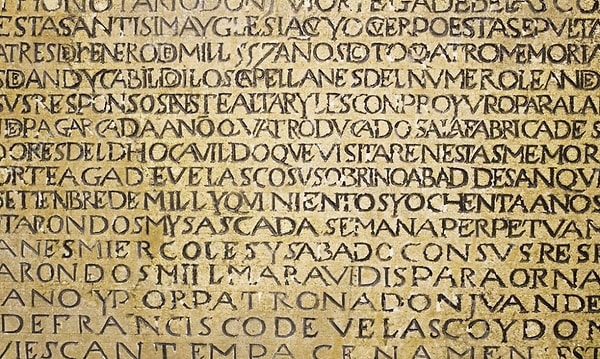 OTONOTARIODONJVORTEGADEBELAS
ESTASANTISIMAYGLESIACVYOCVERPOESTASEPVLTA
ATRESDENERODMILSS7ANOSDOTOQATROMEMORIA
SDANDYCABILDILOSCAPELLANESDELNVMEROLEAND
SVSRESPONSOSANTEALTARYLESCONPROYVROPARALA
DPAGARCADAANOQVATRODVCADOSALAFABRICADES
DORESDELDHOCAVILDOQVEVISITARENESTASMEMOR
ORTEAGADEVELASCOSVSOBRINOABADDESANQVI
SETIENBREDEMILLYQVINIENTOSYOCHENTAANOS
TARONDOSMYSASCADASEMANAPERPETVAM
ANESMIERCOLESYSABADOCONSVSRESP
ARONDOSMILLMARAVIDISPARAORNA
ANOYPORPATRONADONJVANDE
DEFRANCISCODEVELASCOYDON
VIESCANTEMPACENAMEN